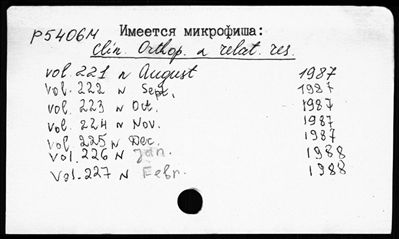 P5406M Имеется микрофиша:
Clin. Orthop. a relat. res.
vol. 221 N August 1987
vol. 222 N Sept. 1987
vol. 223 N Oct. 1987
vol. 224 N Nov. 1987
vol. 225 N Dec. 1987
vol. 226 N Jan. 1988
vol. 227 N Febr. 1988